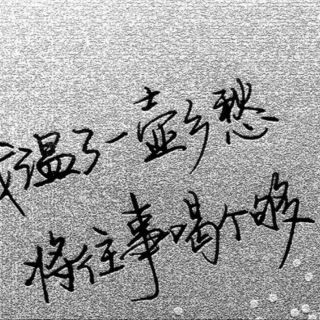 我温了一壶乡愁
将往事喝个够